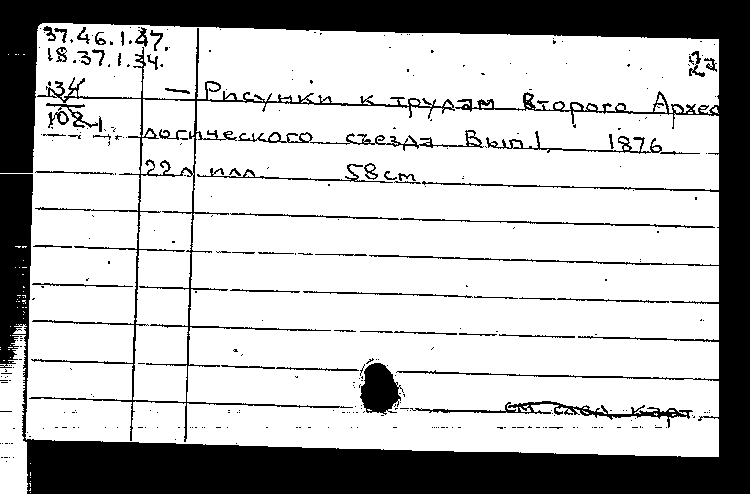 37.46.1.47.
18.37.1.34.
134
102-1
— Рисунки к трудам Второго Архео
логического съезда Вып.1, 1876.
22 л. илл. 58 cm.
см. след. карт.